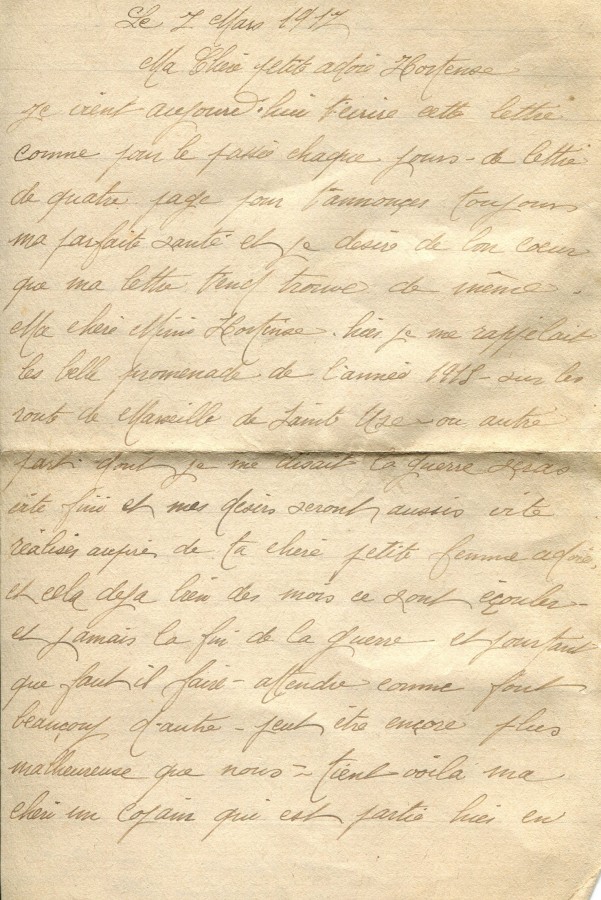 Le 7 Mars 1917
Ma Chère petite adoré Hortense
Je vient aujourd'hui t'ecrire cette lettre
comme pour le passé chaque jours - de lettre
de quatre page pour t'annonçer toujours
ma parfaite santé et je desire de bon coeur
que ma lettre t'en trouve de même.
Ma chère Mimi Hortense. hier je me rappelait
les belle promenade de l'année 1915 - sur les
route de Marseille de Saint Uze - ou autre
part dont je me disait la guerre seras
vite fini et mes desirs seront aussis vite
réalisés aupres de ta chère petite femme adoré,
et cela deja bien des mois ce sont éçouler -
et jamais la fin de la guerre - et pourtant
que faut il faire - attendre comme font
beauçoup d'autre - peut être ençore plus
malheureuse que nous - tient voila ma
chéri un cosain qui est partie hier en